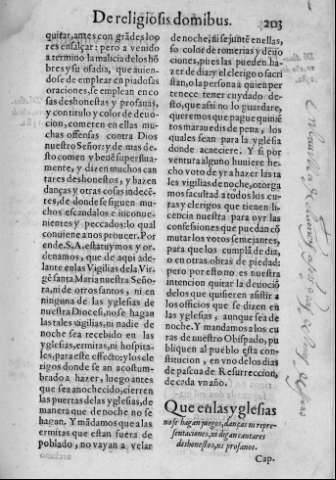 De religiosis domibus.
203
quitar, antes con grãdes loo
res ensalçar: pero a venido
a termino la malicia de los hõ
bres y su osadia, que auiendose
de emplear en piadosas
oraciones, se emplean en co
sas deshonestas y profanas,
y con titulo y color de deuocion,
cometen en ellas muchas
offensas contra Dios
nuestro Señor: y de mas desto
comen y beuẽ superfluamente,
y dizen muchos can
tares deshonestos, y hazen
danças y otras cosas indecẽtes,
de donde se siguen muchos
escandalos e inconuenientes
y peccados: lo qual
conuiene a nos proueer. Por
ende. S.A. estatuymos y ordenamos,
que de aqui adelante
en las Vigilias de la Virgẽ
santa Maria nuestra Señora,
ni de otros santos, ni en
ninguna de las yglesias de
nuestra Diocesi, no se hagan
las tales vigilias, ni nadie de
noche sea recebido en las
yglesias, ermitas, ni hospitales,
para este effecto: y los cle
rigos donde se an acostumbrado
a hazer, luego antes
que sea anochecido, cierren
las puertas de las yglesias, de
manera que de noche no se
hagan. Y mãdamos que a las
ermitas que estan fuera de
poblado, no vayan a velar
de noche, ni se juntẽ en ellas,
so color de romerias y deuociones,
pues las pueden hazer
de dia: y el clerigo o sacristan,
o la persona a quien per
tenece tener cuydado desto,
que assi no lo guardare,
queremos que pague quiniẽ
tos marauedis de pena, los
quales sean para la yglesia
donde acaeciere. Y si por
ventura alguno huuiere hecho
voto de yr a hazer las ta
les vigilias de noche, otorga
mos facultad a todos los curas
y clerigos que tienen licencia
nuestra para oyr las
confessiones que puedan cõ
mutar los votos semejantes,
para que los cumplã de dia,
o en otras obras de piedad:
pero por esto no es nuestra
intencion quitar la deuociõ
de los que quisieren assistir a
los officios que se dizen en
las yglesias, aunque sea de
noche. Y mandamos a los cu
ras de nuestro Obispado, pu
bliquen al pueblo esta constitucion,
en vno de los dias
de pascua de Resurreccion,
de cada vn año.
Que en las yglesias
no se hagan juegos, danças ni repre-
sentaciones, ni digan cantares
deshonestos, ni profanos.
Cap.